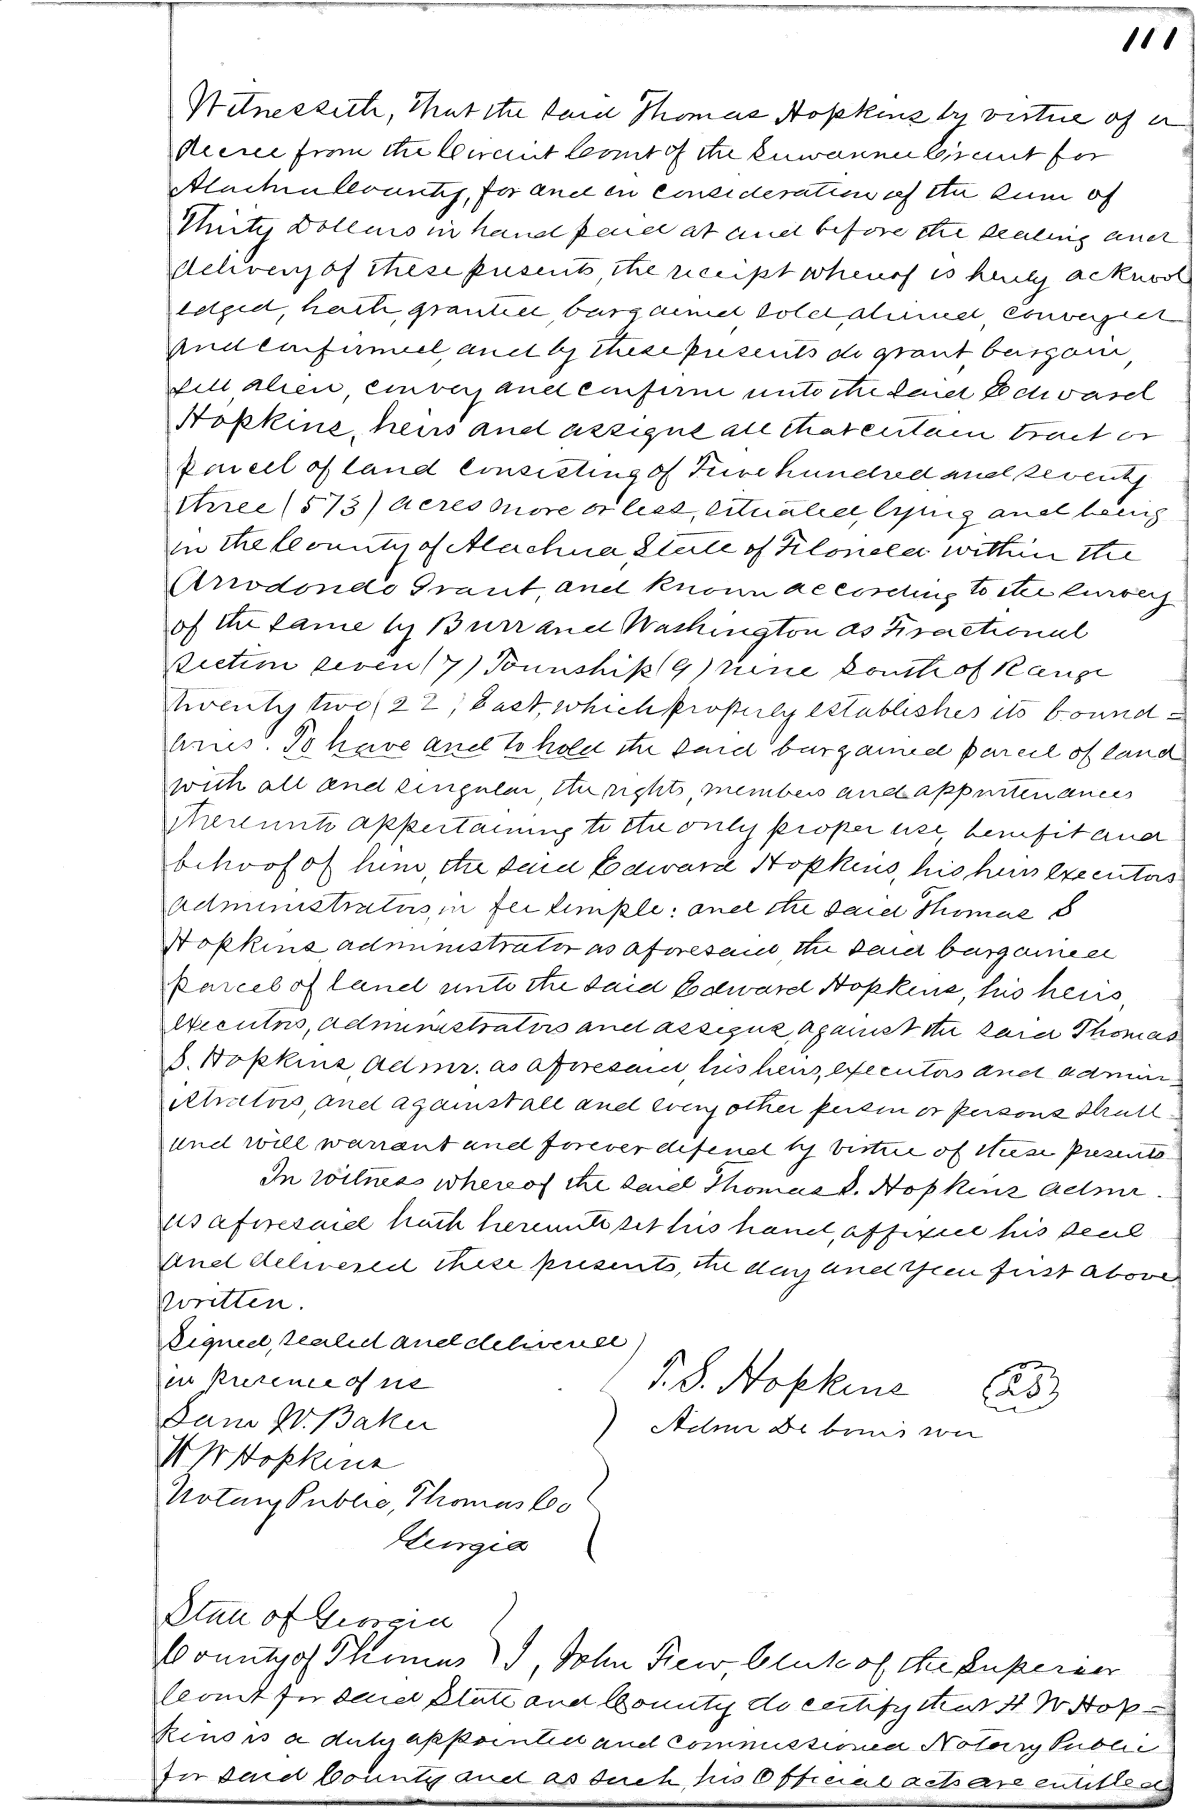 111
Witnesseth, That the said Thomas Hopkins by virtue of a
decree from the Circuit Court of the Suwannee Circuit for
Alachua County, for and in consideration of the sum of
Thirty Dollars in hand paid at and before the sealing and
delivery of these presents, the receipt whereof is hereby acknowl
edged, hath, granted, bargained, sold, aliened, conveyed
and confirmed, and by these presents do grant, bargain,
sell, alien, convey and confirm unto the said Edward
Hopkins, heirs and assigns all that certain tract or
parcel of land consisting of Five hundred and seventy
three (573) acres more or less, situated, lying and being
in the County of Alachua, State of Florida within the
Arrodondo Grant, and known according to the survey
of the same by Burr and Washington as Fractional
section seven (7) Township (9) nine South of Range
twenty two (22) East, which properly establishes its bound=
aries. To have and to hold the said bargained parcel of land
with all and singular, the rights, members and appurtenances
thereunto appertaining to the only proper use, benefit and
behoof of him, the said Edward Hopkins, his heirs executors
administrators, in fee simple: and the said Thomas S
Hopkins administrator as aforesaid, the said bargained
parcel of land unto the said Edward Hopkins, his heirs,
executors, administrators and assigns, against the said Thomas
S. Hopkins, Admr. as aforesaid, his heirs, executors and admin
istrators, and against all and every other person or persons shall
and will warrant and forever defend by virtue of these presents
In witness whereof the said Thomas S. Hopkins Admr.
as aforesaid hath hereunto set his hand, affixed his seal
and delivered these presents, the day and year first above
written.
Signed, sealed and delivered
in presence of us
T. S. Hopkins
Sam W. Baker
Admr De bonis non
H W Hopkins
Notary Public, Thomas Co
Georgia
State of Georgia
County of Thomas } I, John Few, Clerk of the Superior
Court for said State and County do certify that H W Hop=
kins is a duly appointed and commissioned Notary Public
for said County and as such, his Official acts are entitled